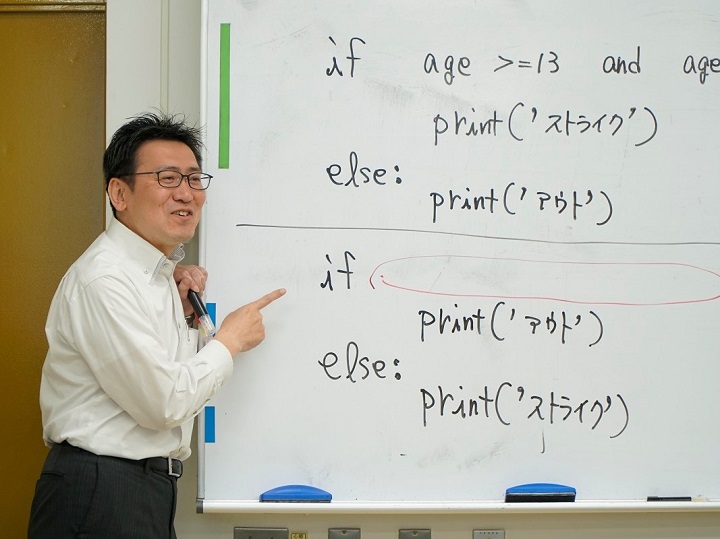 if age >=13 and age
print('ストライク')
else:
print('アウト')
if
print('アウト')
else:
print('ストライク')